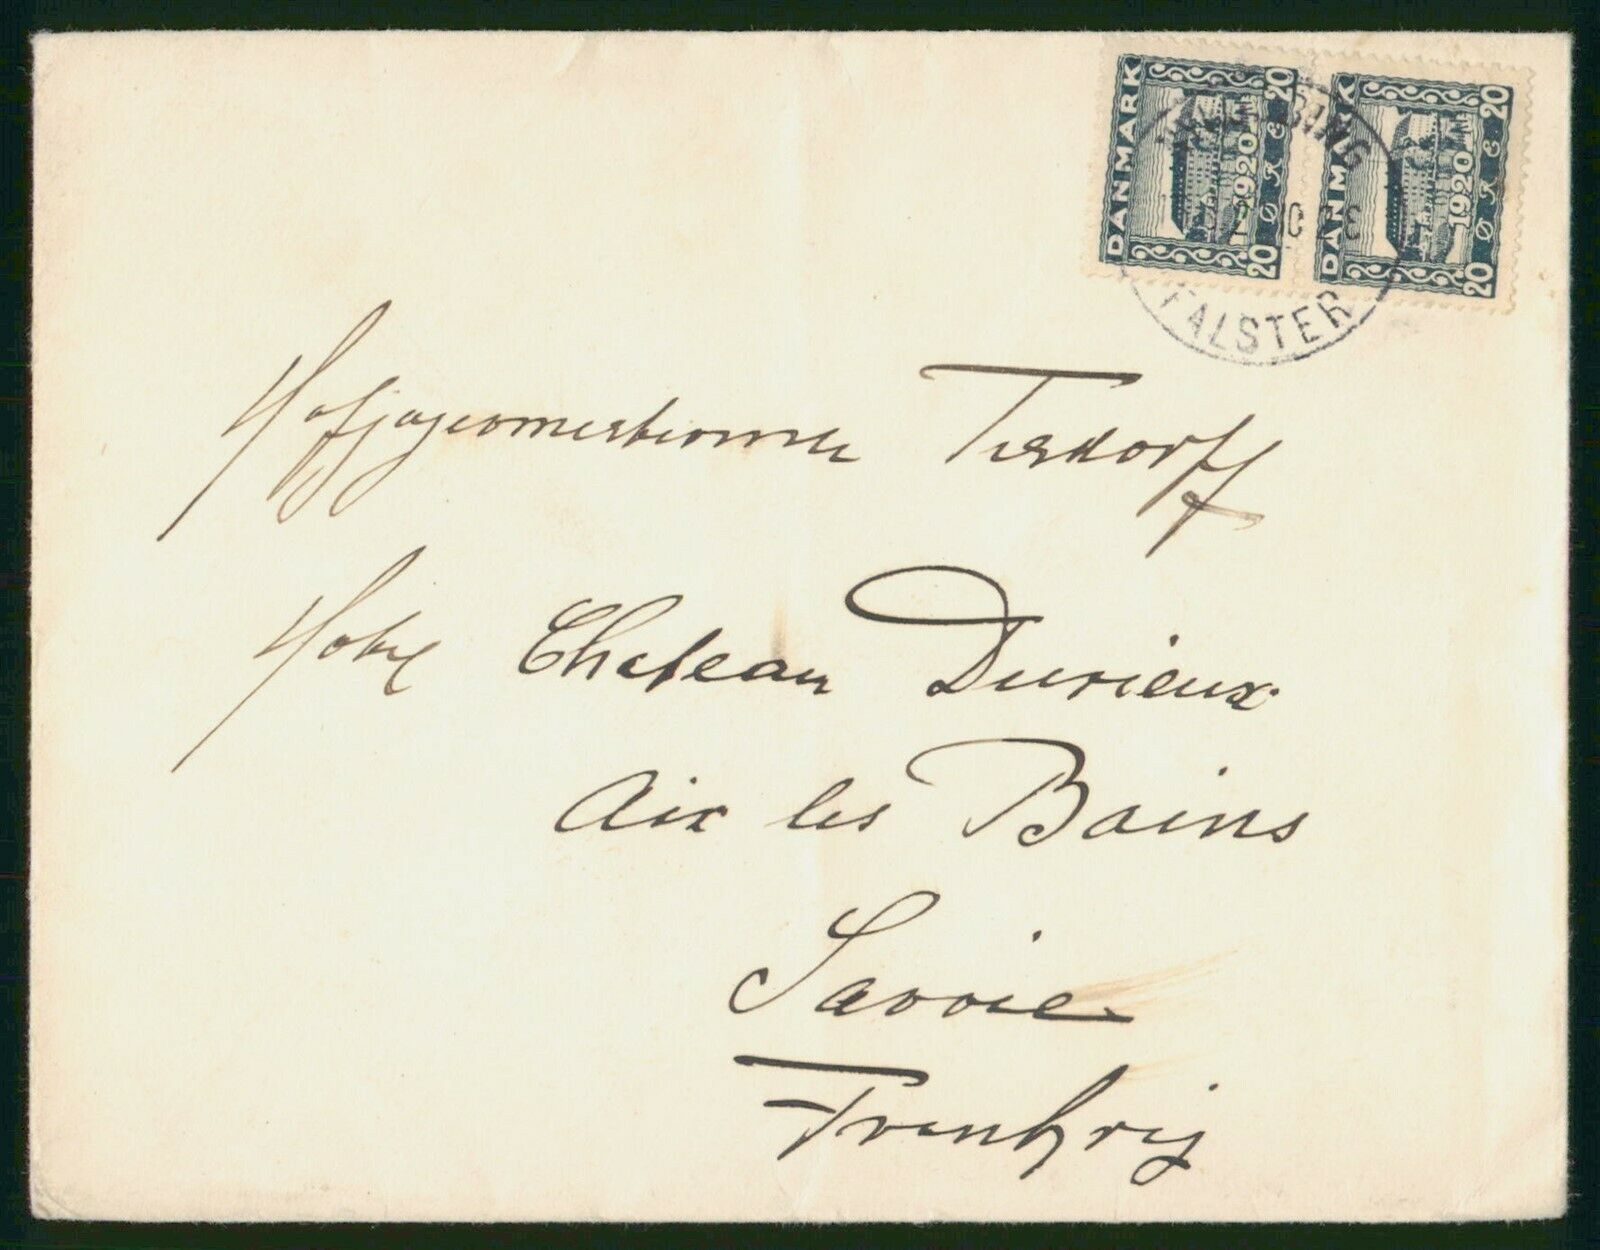 DANMARK 20 1920 20 ØRE
DANMARK 20 1920 20 ØRE
FALSTER
Hofjægermesterinde Tesdorff
Hotel Chateau Durieux
Aix les Bains
Savoie
Frankrig